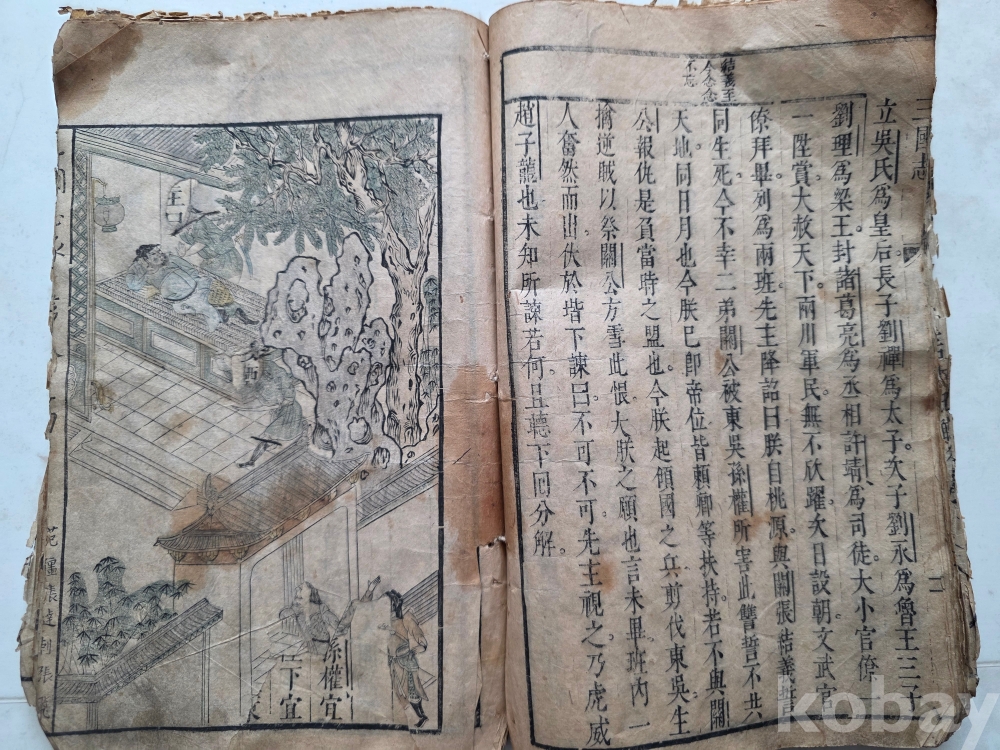 三國志
立吳氏爲皇后長子劉禪爲太子。次子劉永爲魯王三子
劉理爲梁王封諸葛亮爲丞相許靖爲司徒。大小官僚
一陞賞。大赦天下。兩川軍民無不欣躍。次日設朝文武官
僚拜畢列爲兩班。先主降詔曰朕自桃源與關張結義誓
同生死今不幸二弟關公被東吳孫權所害此讐誓不共
天地同日月也今朕已即帝位皆賴卿等扶持若不與關
公報仇是負當時之盟也。今朕起傾國之兵剪伐東吳生
擒逆賊以祭關公方雪此恨大朕之願也言未畢班內一
人奮然而出伏於堦下諫曰不可不可先主視之乃虎威
趙子龍也未知所諫若何且聽下回分解。
結義至
今念念
不忘
范疆張達刺張
kobay